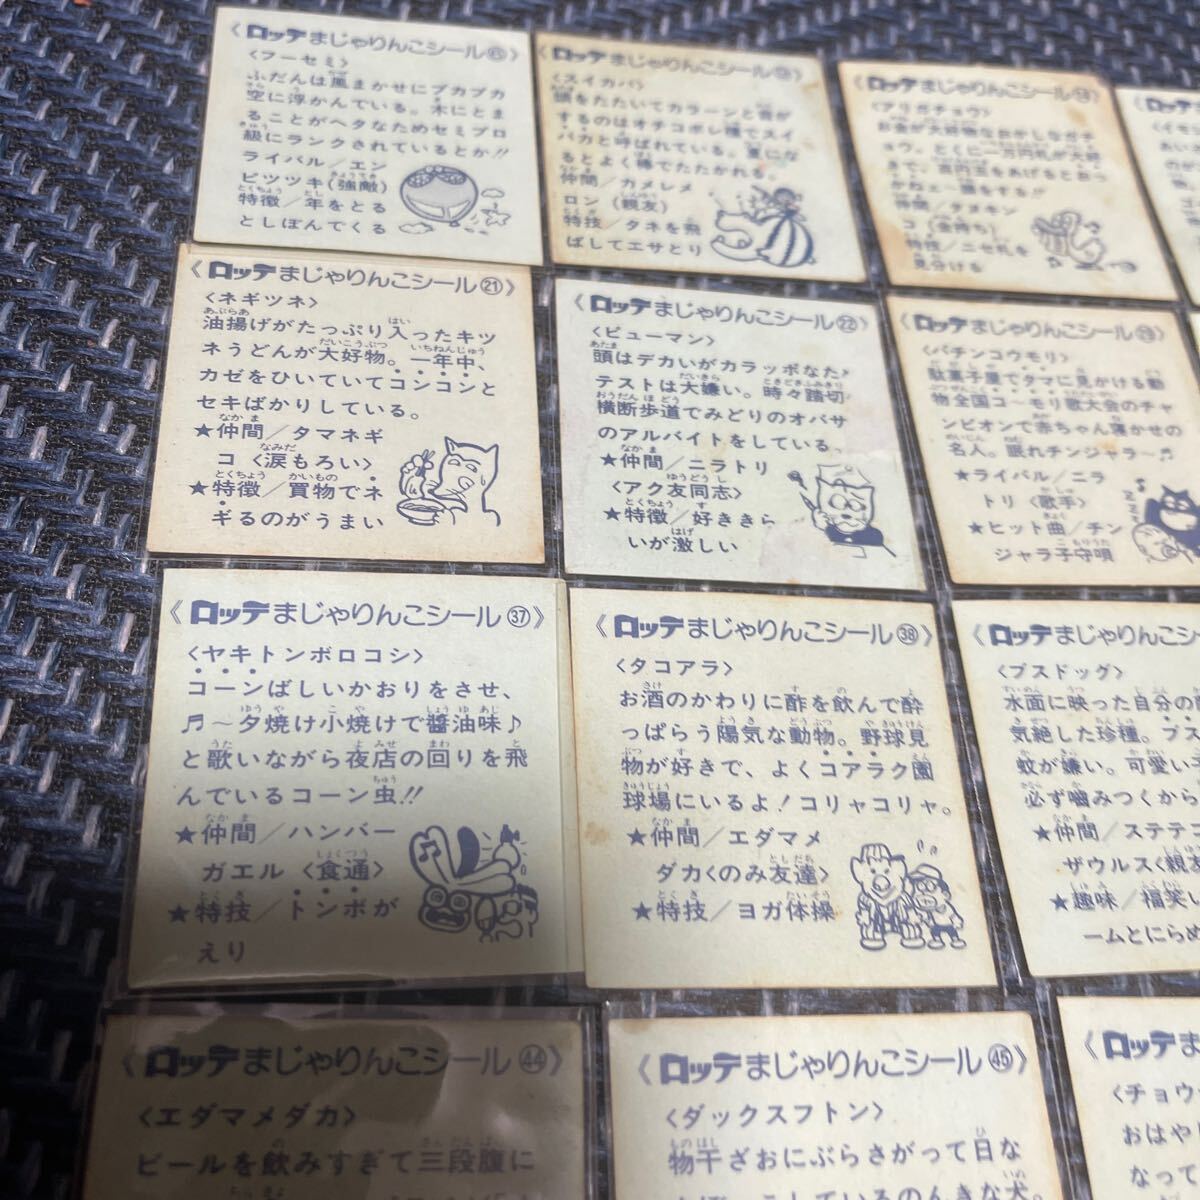 《ロッテまじゃりんこシール
〈フーセミ〉
ふだんは風まかせにプカプカ
空に浮かんでいる。木にとま
ることがヘタなためセミプロ
級にランクされているとか!!
ライバル/エン
ピツツキ(強敵)
特徴/年をとる
としぼんでくる
《ロッテまじゃりんこシール
〈スイカバ〉
頭をたたいてカラーンと音が
するのはオチコボレ種でスイ
バカと呼ばれている。夏にな
るとよく棒でたたかれる。
仲間/カメレメ
ロン(親友)
特技/タネを飛
ばしてエサとり
《ロッテまじゃりんこシール
〈アリガチョウ〉
お金が大好物なおかしなガチ
ョウ。とくに一万円札が大好
きで、百円玉をあげると怒っ
仲間/タヌキン
コ(金持ち)
特技/ニセ札を
見分ける
《ロッテ
〈イモ
《ロッテまじゃりんこシール㉑》
〈ネギツネ〉
油揚げがたっぷり入ったキツ
ネうどんが大好物。一年中、
カゼをひいていてコンコンと
セキばかりしている。
★仲間/タマネギ
コ〈涙もろい〉
★特徴/買物でネ
ギるのがうまい
《ロッテまじゃりんこシール㉒》
〈ピューマン〉
頭はデカいがカラッポなため
テストは大嫌い。時々踏切や
横断歩道でみどりのオバサン
のアルバイトをしている。
★仲間/ニラトリ
〈アク友同志〉
★特徴/好ききら
いが激しい
《ロッテまじゃりんこシール
〈パチンコウモリ〉
駄菓子屋でタマに見かける動
物全国コーモリ歌大会のチャ
ンピオンで赤ちゃん寝かせの
名人。眠れチンジャラ〜♬
★ライバル/ニラ
トリ〈歌手〉
★ヒット曲/チン
ジャラ子守唄
《ロッテまじゃりんこシール㊲》
〈ヤキトンボロコシ〉
コーンばしいかおりをさせ、
♬〜夕焼け小焼けで醬油味♪
と歌いながら夜店の回りを飛
んでいるコーン虫!!
★仲間/ハンバー
ガエル〈食通〉
★特技/トンボが
えり
《ロッテまじゃりんこシール㊳》
〈タコアラ〉
お酒のかわりに酢を飲んで酔
っぱらう陽気な動物。野球見
物が好きで、よくコアラク園
球場にいるよ!コリャコリャ。
★仲間/エダマメ
ダカ〈のみ友達〉
★特技/ヨガ体操
《ロッテまじゃりんこシー
〈ブスドッグ〉
水面に映った自分の
気絶した珍種。ブス
蚊が嫌い。可愛い
必ず嚙みつくから
★仲間/ステテ
ザウルス〈親
★趣味/福笑い
ームとにらめ
《ロッテまじゃりんこシール㊹》
〈エダマメダカ〉
ビールを飲みすぎて三段腹に
《ロッテまじゃりんこシール㊺》
〈ダックスフトン〉
物干ざおにぶらさがって日な
《ロッテま
〈チョウ
おはやし
なって